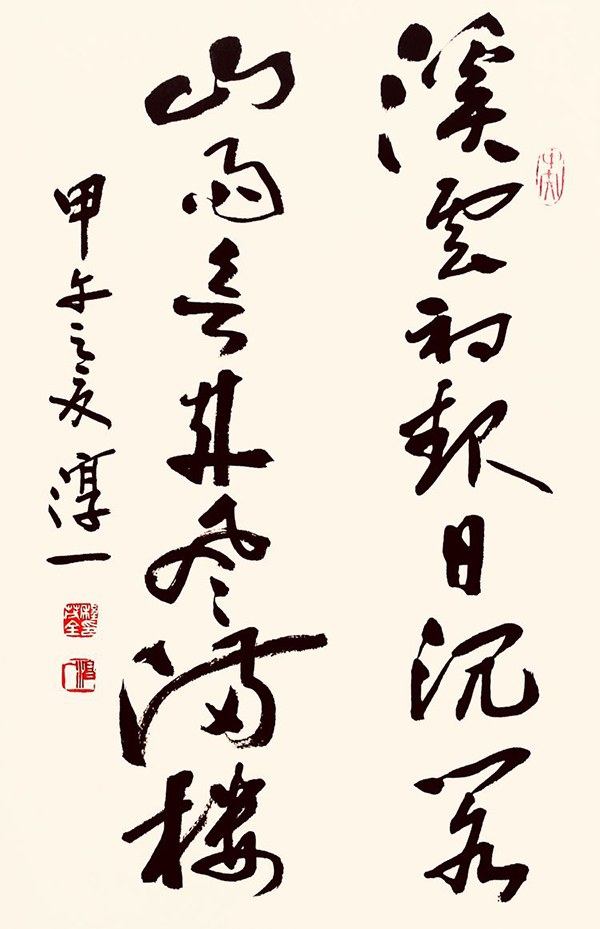 溪雲初起日沉閣
山雨欲來風滿樓
甲午之夏 淳一